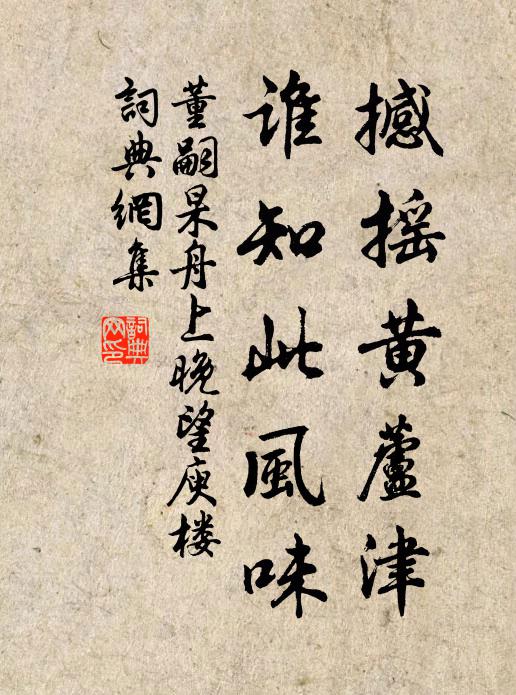 撼摇黄蘆津
谁知此風味
董嗣杲舟上晚望庾楼
詞典網集
詞典網印